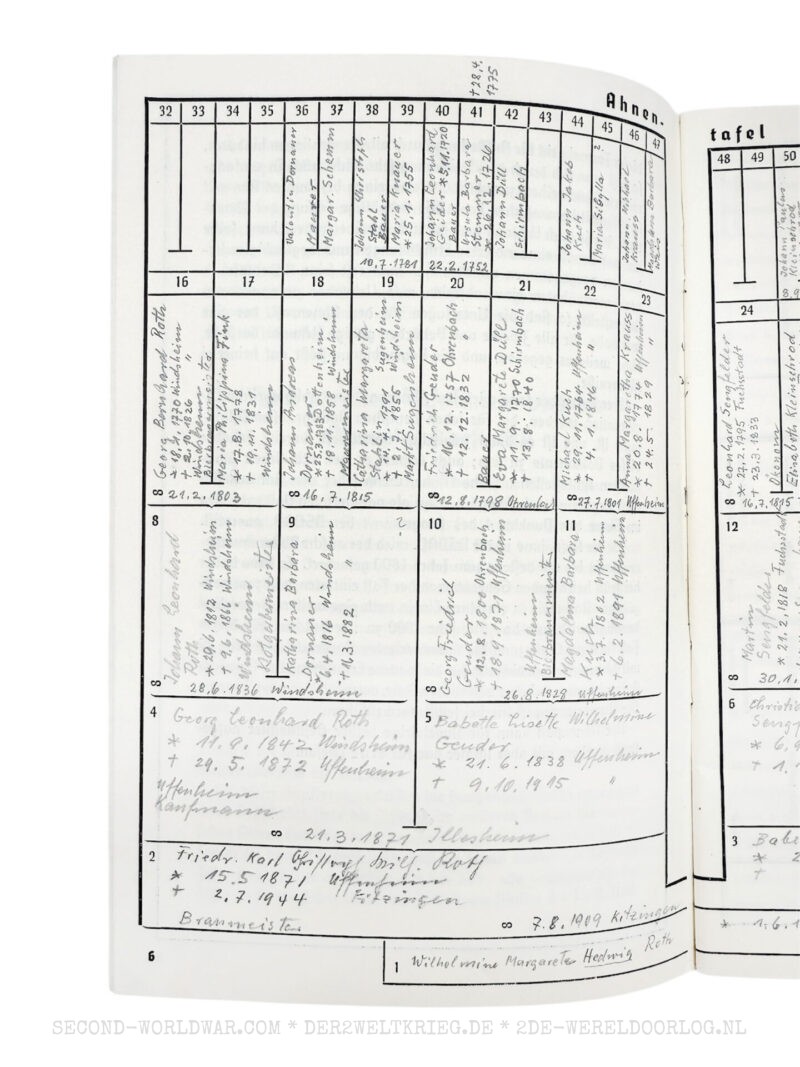 † 28.4.
1775
Ahnen-
tafel
32 33 34 35 36 37 38 39 40 41 42 43 44 45 46 47
48 49 50
Valentin Dornauer
Maurer
Margar. Schemm
Johann Christoph
Stahl
Bauer
Maria Knauer
* 25.1.1755
10.7.1781
Johann Leonhard
Geider * 5.11.1720
Bauer
Ursula Barbara
Stemmer
* 26.12.1726
22.2.1752
Johann Düll
Schirmbach
Johann Jakob
Kuch
Maria Sibylla ?
Johann Michael
Krauss
Magdalena Barbara
16 17 18 19 20 21 22 23
24
Georg Bernhard Roth
Windsheim
† 2.10.1826 "
Windsheim
Bierbrauermeister
Maria Philippina Fink
* 17.8.1778
† 19.11.1831
Windsheim
∞ 21.2.1803
Johann Andreas
Dornauer
* 25.3.1783 Dottenheim
† 18.11.1858 Windsheim
Maurermeister
Catharina Margareta
Stahlin Sugenheim
* 14.4.1791
† 2.7.1855 Windsheim
Markt Sugenheim
∞ 16.7.1815
Friedrich Geuder
* 16.12.1757 Ohrenbach
† 12.12.1832 "
Bauer
Eva Margarete Düll
* 11.9.1770 Schirmbach
† 13.8.1840
∞ 12.8.1798 Ohrenbach
Michael Kuch
* 29.11.1764 Uffenheim
† 4.1.1846 "
Anna Margaretha Krauss
* 20.8.1774 Uffenheim
† 24.5.1829 "
∞ 27.7.1801 Uffenheim
Leonhard Sengfelder
* 27.2.1795 Fuchsstadt
† 23.3.1833
Ökonom
Elisabeth Kleinschrod
∞ 16.7.1815
8 9 ? 10 11
12
Johann Leonhard
Roth
* 29.6.1812 Windsheim
† 9.6.1866 Windsheim
Windsheim
Rotgerbermeister
Katharina Barbara
Dornauer
* 6.4.1816 Windsheim
† 16.3.1882 "
∞ 28.6.1836 Windsheim
Georg Friedrich
Geuder
* 12.8.1800 Ohrenbach
† 18.9.1871 Uffenheim
Uffenheim
Bierbrauermeister
Magdalena Barbara
Kuch
* 3.7.1802 Uffenheim
† 6.2.1891 Uffenheim
∞ 26.8.1828 Uffenheim
Martin
Sengfelder
* 21.2.1818 Fuchsstadt
∞ 30.1.
4 Georg Leonhard Roth
* 11.9.1842 Windsheim
† 29.5.1872 Uffenheim
Uffenheim
Kaufmann
5 Babette Lisette Wilhelmine
Geuder
* 21.6.1838 Uffenheim
† 9.10.1915 "
∞ 21.3.1871 Illesheim
6
Sengf
* 6.9
† 1.
2 Friedr. Karl Christoph Wilh. Roth
* 15.5.1871 Uffenheim
† 2.7.1944 Kitzingen
Braumeister
∞ 7.8.1909 Kitzingen
3 Babe
* 2
†
* 1.6.1
6
1 Wilhelmine Margarete Hedwig Roth
SECOND-WORLDWAR.COM * DER2WELTKRIEG.DE * 2DE-WERELDOORLOG.NL